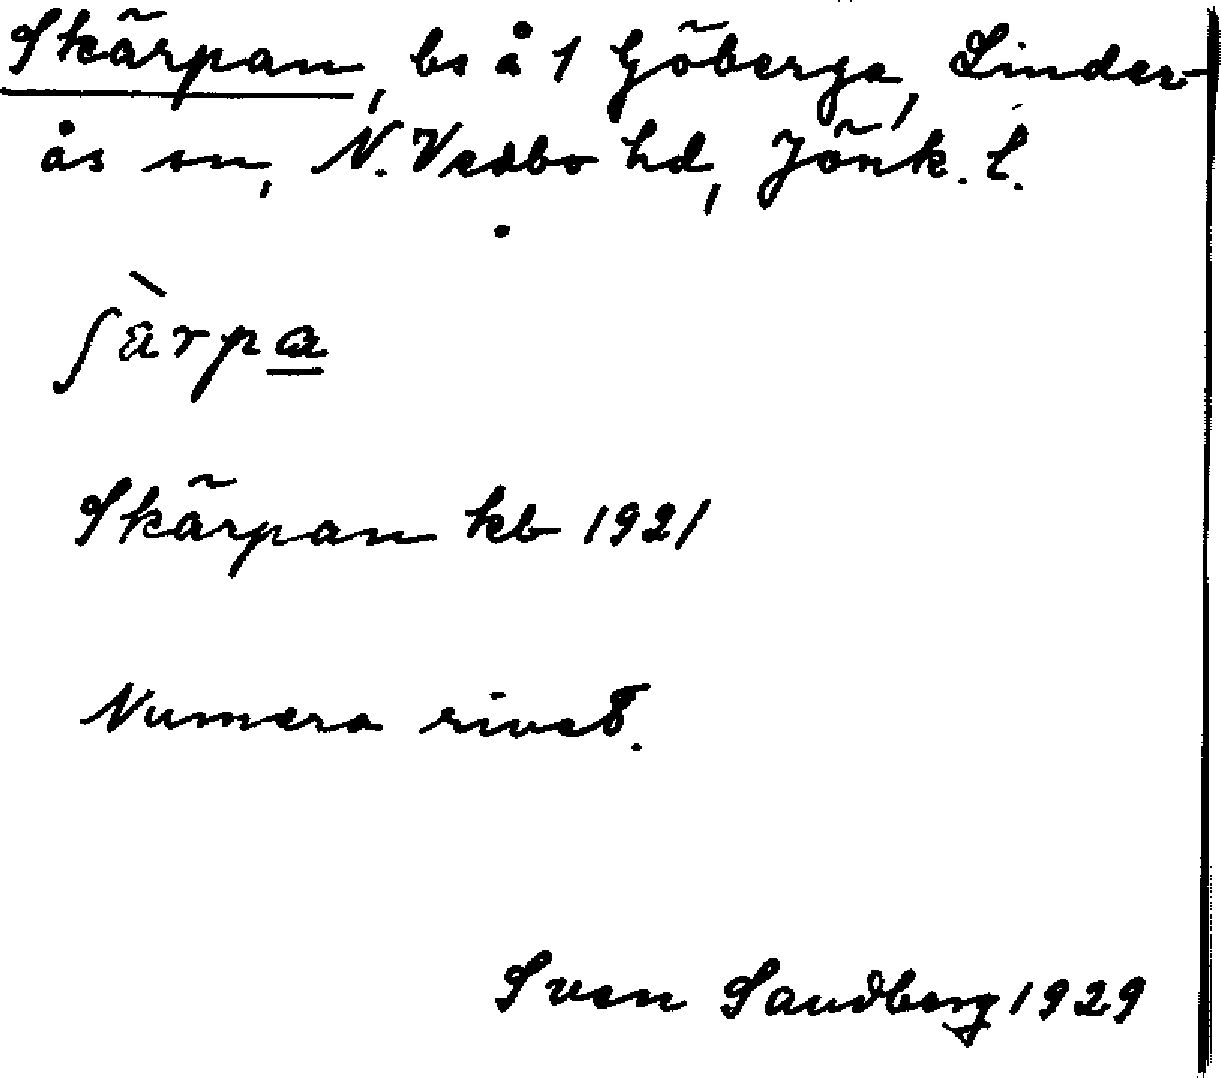 Skärpan, bs å 1 Göberga, Linder-
ås sn, N. Vedbo hd, Jönk. l.
ʃàrpa
Skärpan kb 1921
Numera rivet.
Sven Sandberg 1929